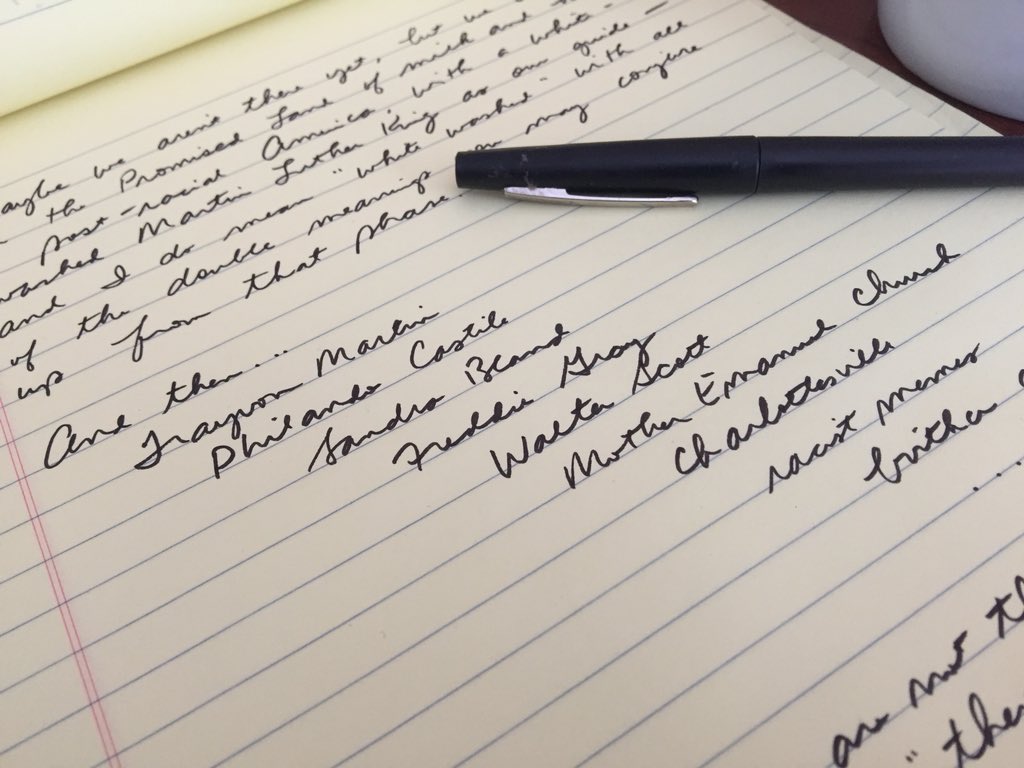 maybe we aren't there yet, but we
the Promised Land of milk and
post-racial America, with a white-
washed Martin Luther King as our guide —
and I do mean "white washed" with all
of the double meanings you may conjure
up from that phase.
And then...
Trayvon Martin
Philando Castile
Sandra Bland
Freddie Gray
Walter Scott
Mother Emanuel Church
Charlottesville
racist memes
birther
...
are not
"then